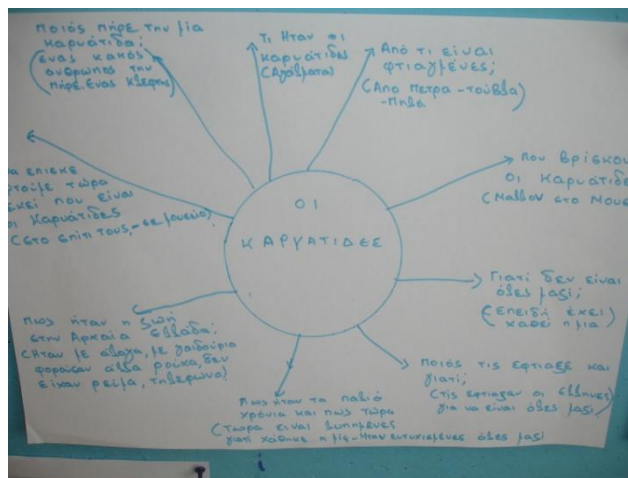 ποιός πήρε την μία
καρυάτιδα;
(ένας κακός
άνθρωπος την
πήρε. Ένας κλέφτης)
Τι ήταν οι
καρυάτιδες
(Αγάλματα)
Από τι είναι
φτιαγμένες;
(Από πετρα - τούβλα)
- πηλό
που βρίσκον
οι Καρυάτιδε
(Μαλλον στο Μουσ
Γιατί δεν είναι
όλες μαζί;
(Επειδή έχει
χαθεί η μία)
ποιός τις έφτιαξε και
γιατί;
(Τις έφτιαξαν οι Έλληνες
για να είναι όλες μαζί)
Πως ήταν τα παλιό
χρόνια και πως τώρα
(Τώρα είναι λυπημένες
γιατί χάθηκε η μία - Ήταν ευτυχισμένες όλες μαζί
πως ήταν η ζωή
στην Αρχαία Ελλάδα;
(Ήταν με άλογα, με γαϊδούρια
φορούσαν άλλα ρούχα, δεν
είχαν ρεύμα, τηλεόραση)
να επισκε
φτούμε τώρα
εκεί που είναι
οι Καρυάτιδες
(στο σπίτι τους, - σε μουσείο)
ΟΙ
ΚΑΡΥΑΤΙΔΕΣ